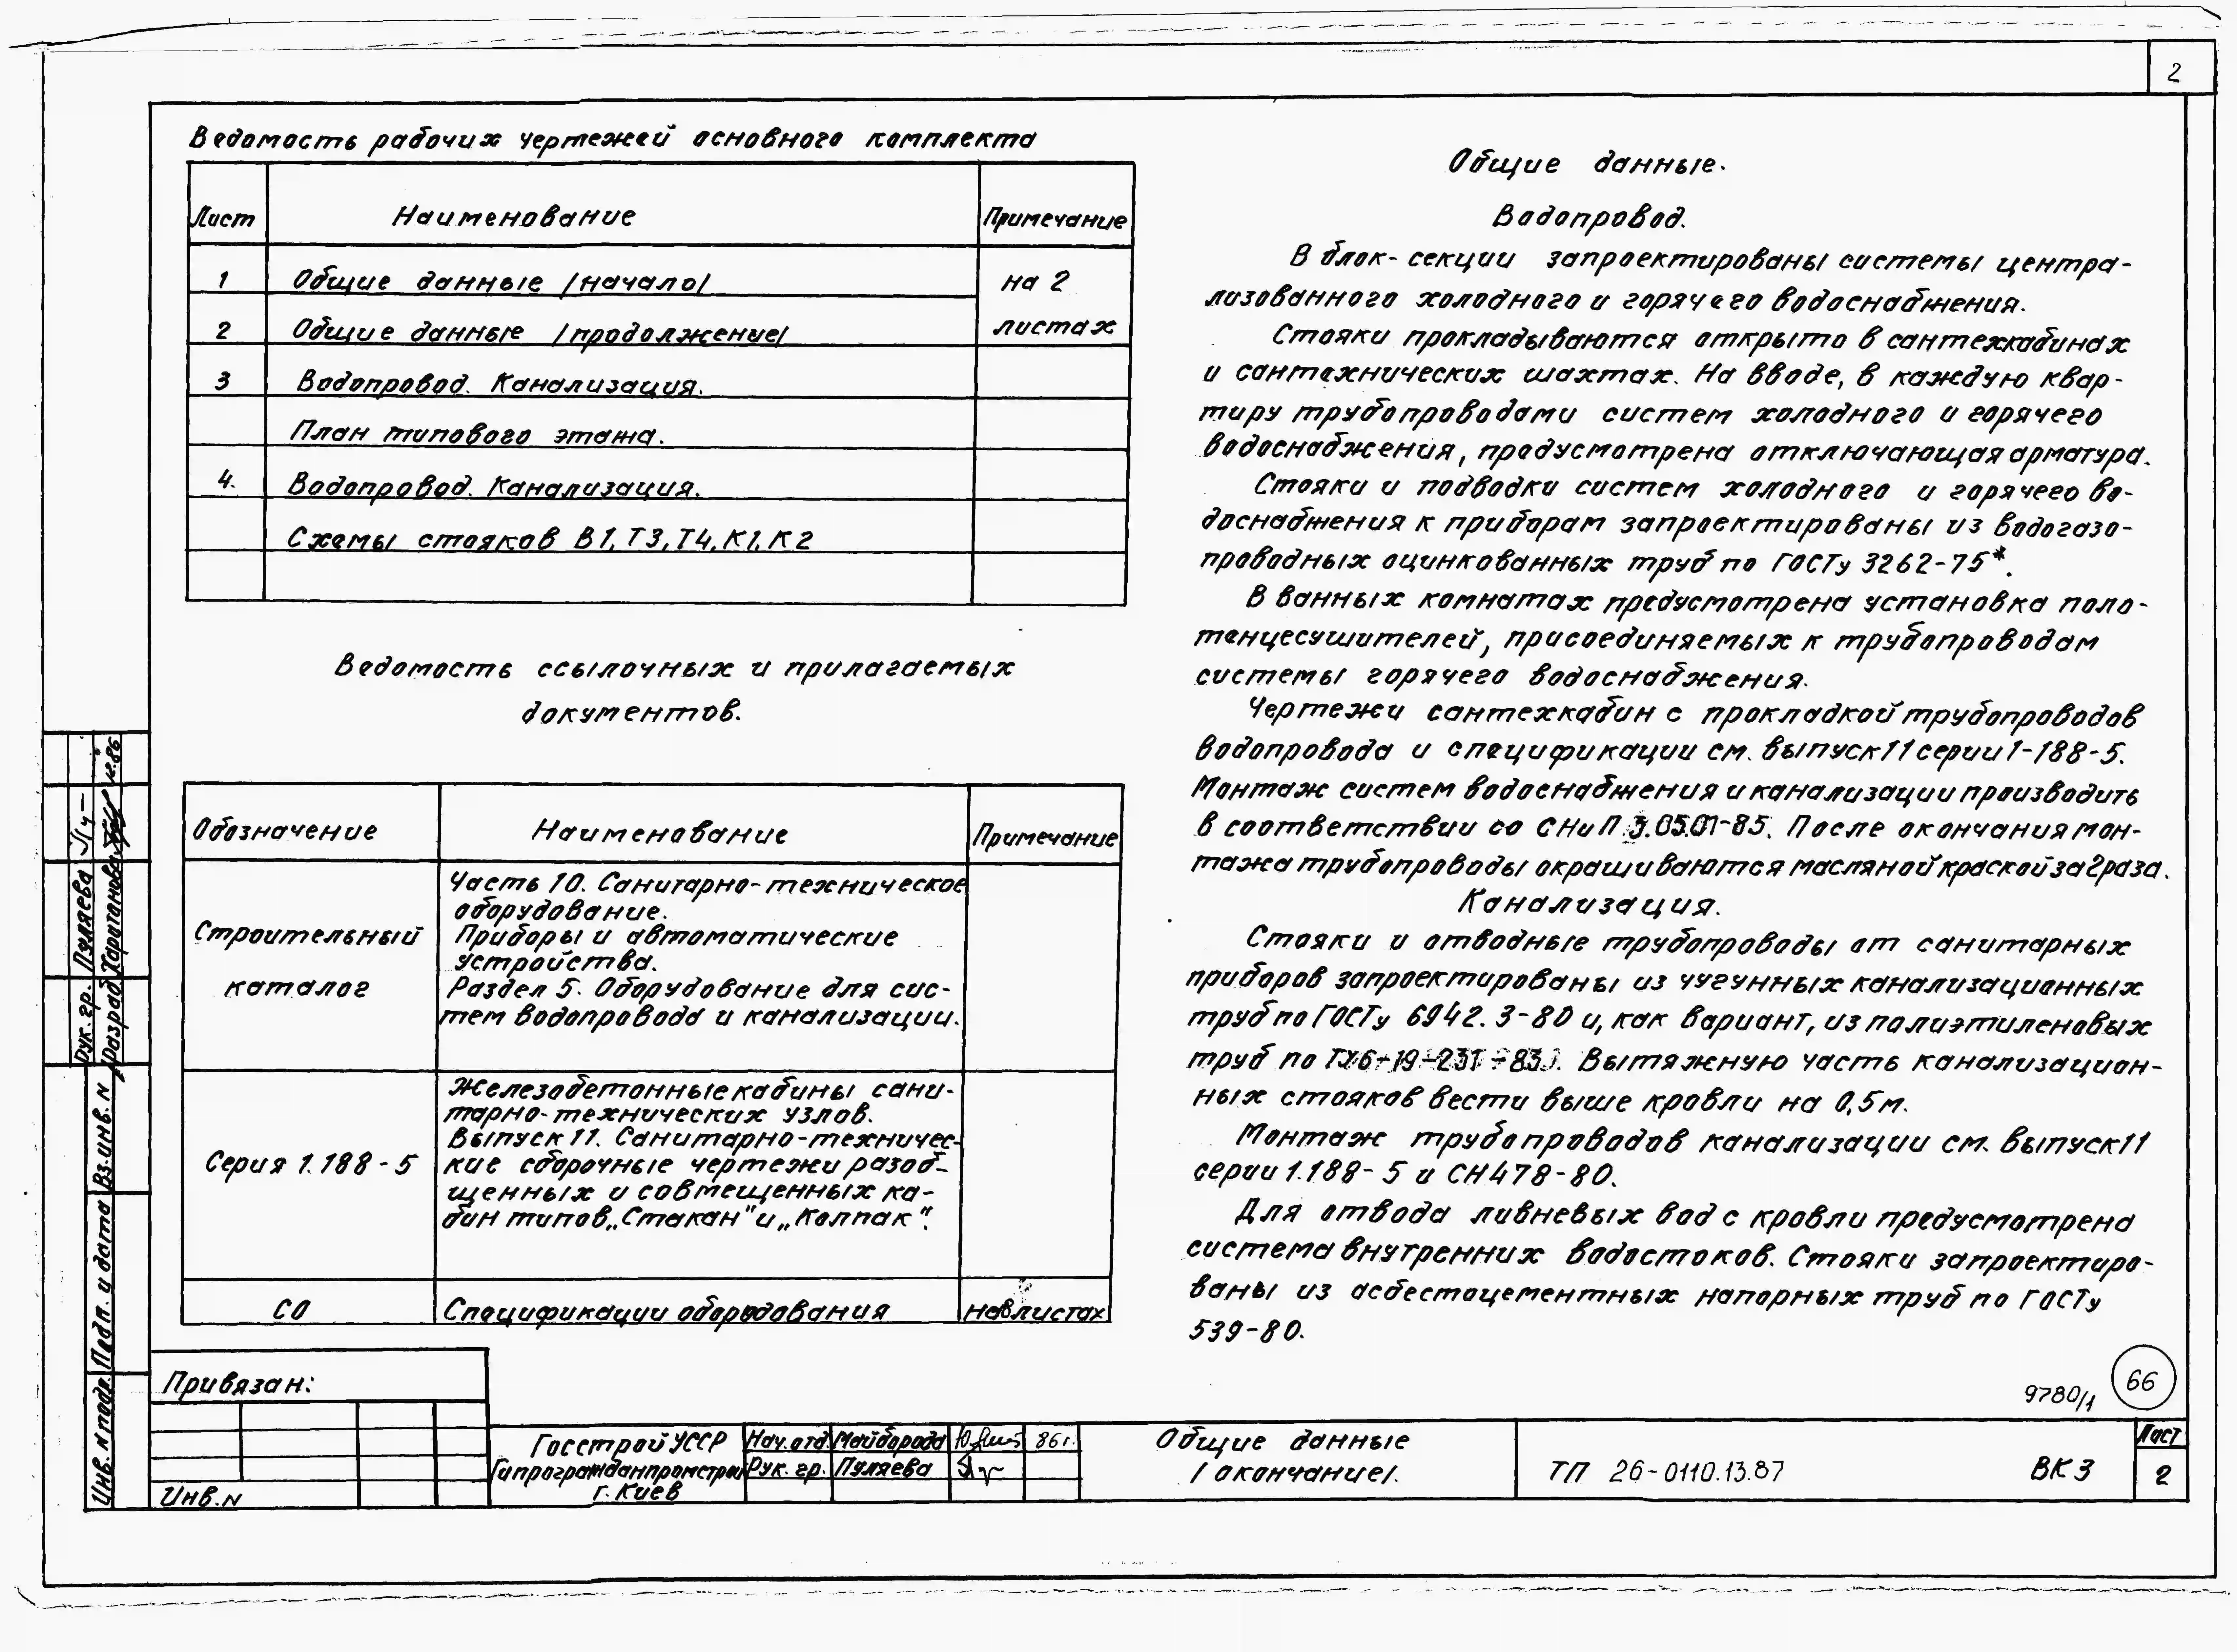 2
Ведомость рабочих чертежей основного комплекта
Лист Наименование Примечание
1 Общие данные /начало/ на 2
2 Общие данные /продолжение/ листах
3 Водопровод. Канализация.
План типового этажа.
4. Водопровод. Канализация.
Схемы стояков В1, Т3, Т4, К1, К2
Ведомость ссылочных и прилагаемых
документов.
Обозначение Наименование Примечание
Строительный
каталог
Часть 10. Санитарно-техническое
оборудование.
Приборы и автоматические
устройства.
Раздел 5. Оборудование для сис-
тем водопровода и канализации.
Серия 1.188-5
Железобетонные кабины сани-
тарно-технических узлов.
Выпуск 11. Санитарно-техничес-
кие сборочные чертежи разоб-
щенных и совмещенных ка-
бин типов „Стакан" и „Колпак".
СО Спецификации оборудования листах
Общие данные.
Водопровод.
В блок-секции запроектированы системы центра-
лизованного холодного и горячего водоснабжения.
Стояки прокладываются открыто в сантехкабинах
и сантехнических шахтах. На вводе, в каждую квар-
тиру трубопроводами систем холодного и горячего
водоснабжения, предусмотрена отключающая арматура.
Стояки и подводки систем холодного и горячего во-
доснабжения к приборам запроектированы из водогазо-
проводных оцинкованных труб по ГОСТу 3262-75*.
В ванных комнатах предусмотрена установка поло-
тенцесушителей, присоединяемых к трубопроводам
системы горячего водоснабжения.
Чертежи сантехкабин с прокладкой трубопроводов
водопровода и спецификации см. выпуск 11 серии 1-188-5.
Монтаж систем водоснабжения и канализации производить
в соответствии со СНиП 3.05.01-85. После окончания мон-
тажа трубопроводы окрашиваются масляной краской за 2 раза.
Канализация.
Стояки и отводные трубопроводы от санитарных
приборов запроектированы из чугунных канализационных
труб по ГОСТу 6942.3-80 и, как вариант, из полиэтиленовых
труб по ТУ6-19-231-83. Вытяжную часть канализацион-
ных стояков вести выше кровли на 0,5м.
Монтаж трубопроводов канализации см. выпуск 11
серии 1.188-5 и СН478-80.
Для отвода ливневых вод с кровли предусмотрена
система внутренних водостоков. Стояки запроектиро-
ваны из асбестоцементных напорных труб по ГОСТу
539-80.
66
9780/1
Привязан:
Инв. N
Госстрой УССР
Гипрогражданпромстрой
г. Киев
Нач. отд. Майборода 86г.
Рук. гр. Пуляева
Общие данные
/окончание/.
ТП 26-0110.13.87 ВК3
Лист
2
Рук. гр. Пуляева
Разраб. Харитонова 12.86
Вз. инв. N
Подп. и дата
Инв. N подл.